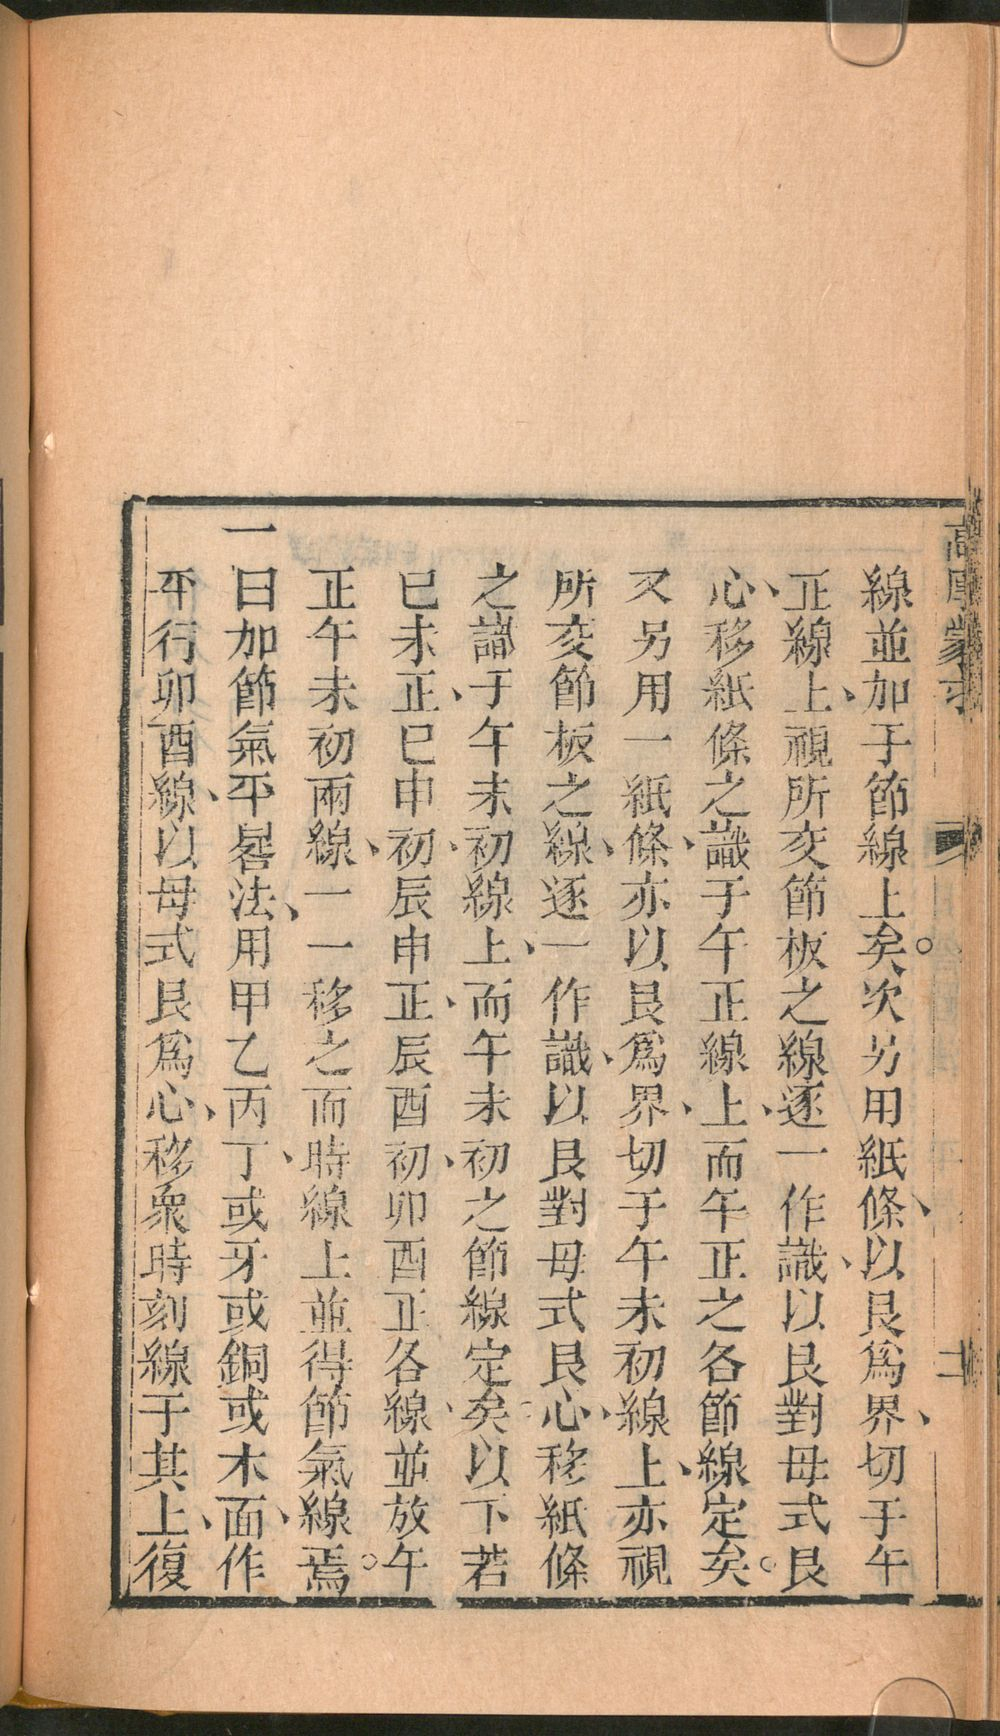 線並加于節線上矣。次另用紙條、以艮爲界、切于午
正線上、視所交節板之線逐一作識、以艮對母式艮
心、移紙條之識于午正線上、而午正之各節線定矣。
又另用一紙條、亦以艮爲界、切于午未初線上、亦視
所交節板之線、逐一作識、以艮對母式艮心、移紙條
之識于午未初線上、而午未初之節線定矣、以下若
巳未正、巳申初、辰申正、辰酉初、卯酉正各線、並放午
正午未初兩線、一一移之而時線上並得節氣線焉。
一曰加節氣平晷法、用甲乙丙丁、或牙或銅或木面、作
平行卯酉線、以母式艮爲心、移衆時刻線于其上、復